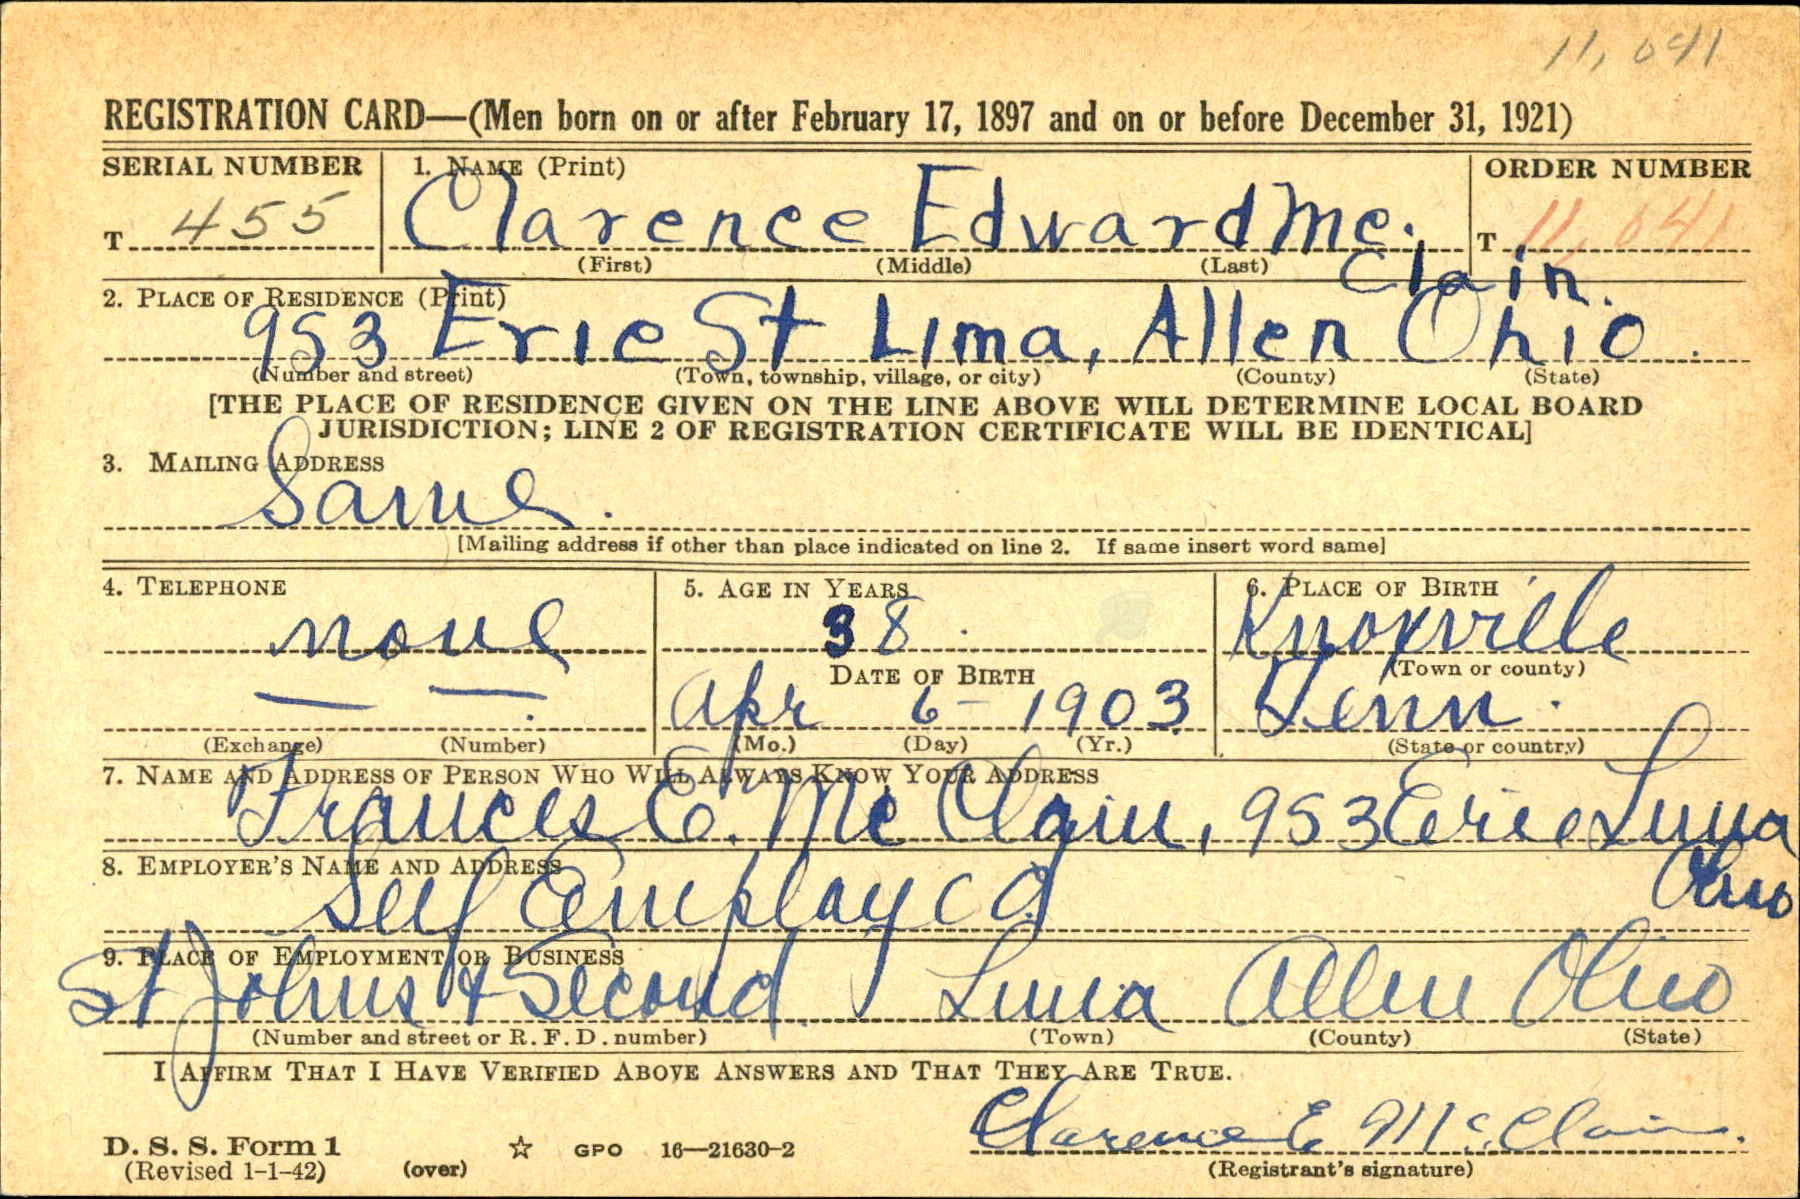 11,041
REGISTRATION CARD—(Men born on or after February 17, 1897 and on or before December 31, 1921)
SERIAL NUMBER 1. NAME (Print) ORDER NUMBER
T 455 Clarence Edward Mc. T 11,041
(First) (Middle) (Last) Clain.
2. PLACE OF RESIDENCE (Print)
953 Erie St Lima, Allen Ohio.
(Number and street) (Town, township, village, or city) (County) (State)
[THE PLACE OF RESIDENCE GIVEN ON THE LINE ABOVE WILL DETERMINE LOCAL BOARD
JURISDICTION; LINE 2 OF REGISTRATION CERTIFICATE WILL BE IDENTICAL]
3. MAILING ADDRESS
Same.
[Mailing address if other than place indicated on line 2. If same insert word same]
4. TELEPHONE 5. AGE IN YEARS 6. PLACE OF BIRTH
none 38. Knoxville
DATE OF BIRTH (Town or county)
— — Apr 6 - 1903 Tenn.
(Exchange) (Number) (Mo.) (Day) (Yr.) (State or country)
7. NAME AND ADDRESS OF PERSON WHO WILL ALWAYS KNOW YOUR ADDRESS
Frances E. Mc Clain, 953 Erie Lima
Ohio
8. EMPLOYER'S NAME AND ADDRESS
Self Employed
9. PLACE OF EMPLOYMENT OR BUSINESS
St Johns & Second. Lima Allen Ohio
(Number and street or R. F. D. number) (Town) (County) (State)
I AFFIRM THAT I HAVE VERIFIED ABOVE ANSWERS AND THAT THEY ARE TRUE.
Clarence E McClain.
D. S. S. Form 1 ☆ GPO 16—21630-2
(Revised 1-1-42) (over) (Registrant's signature)